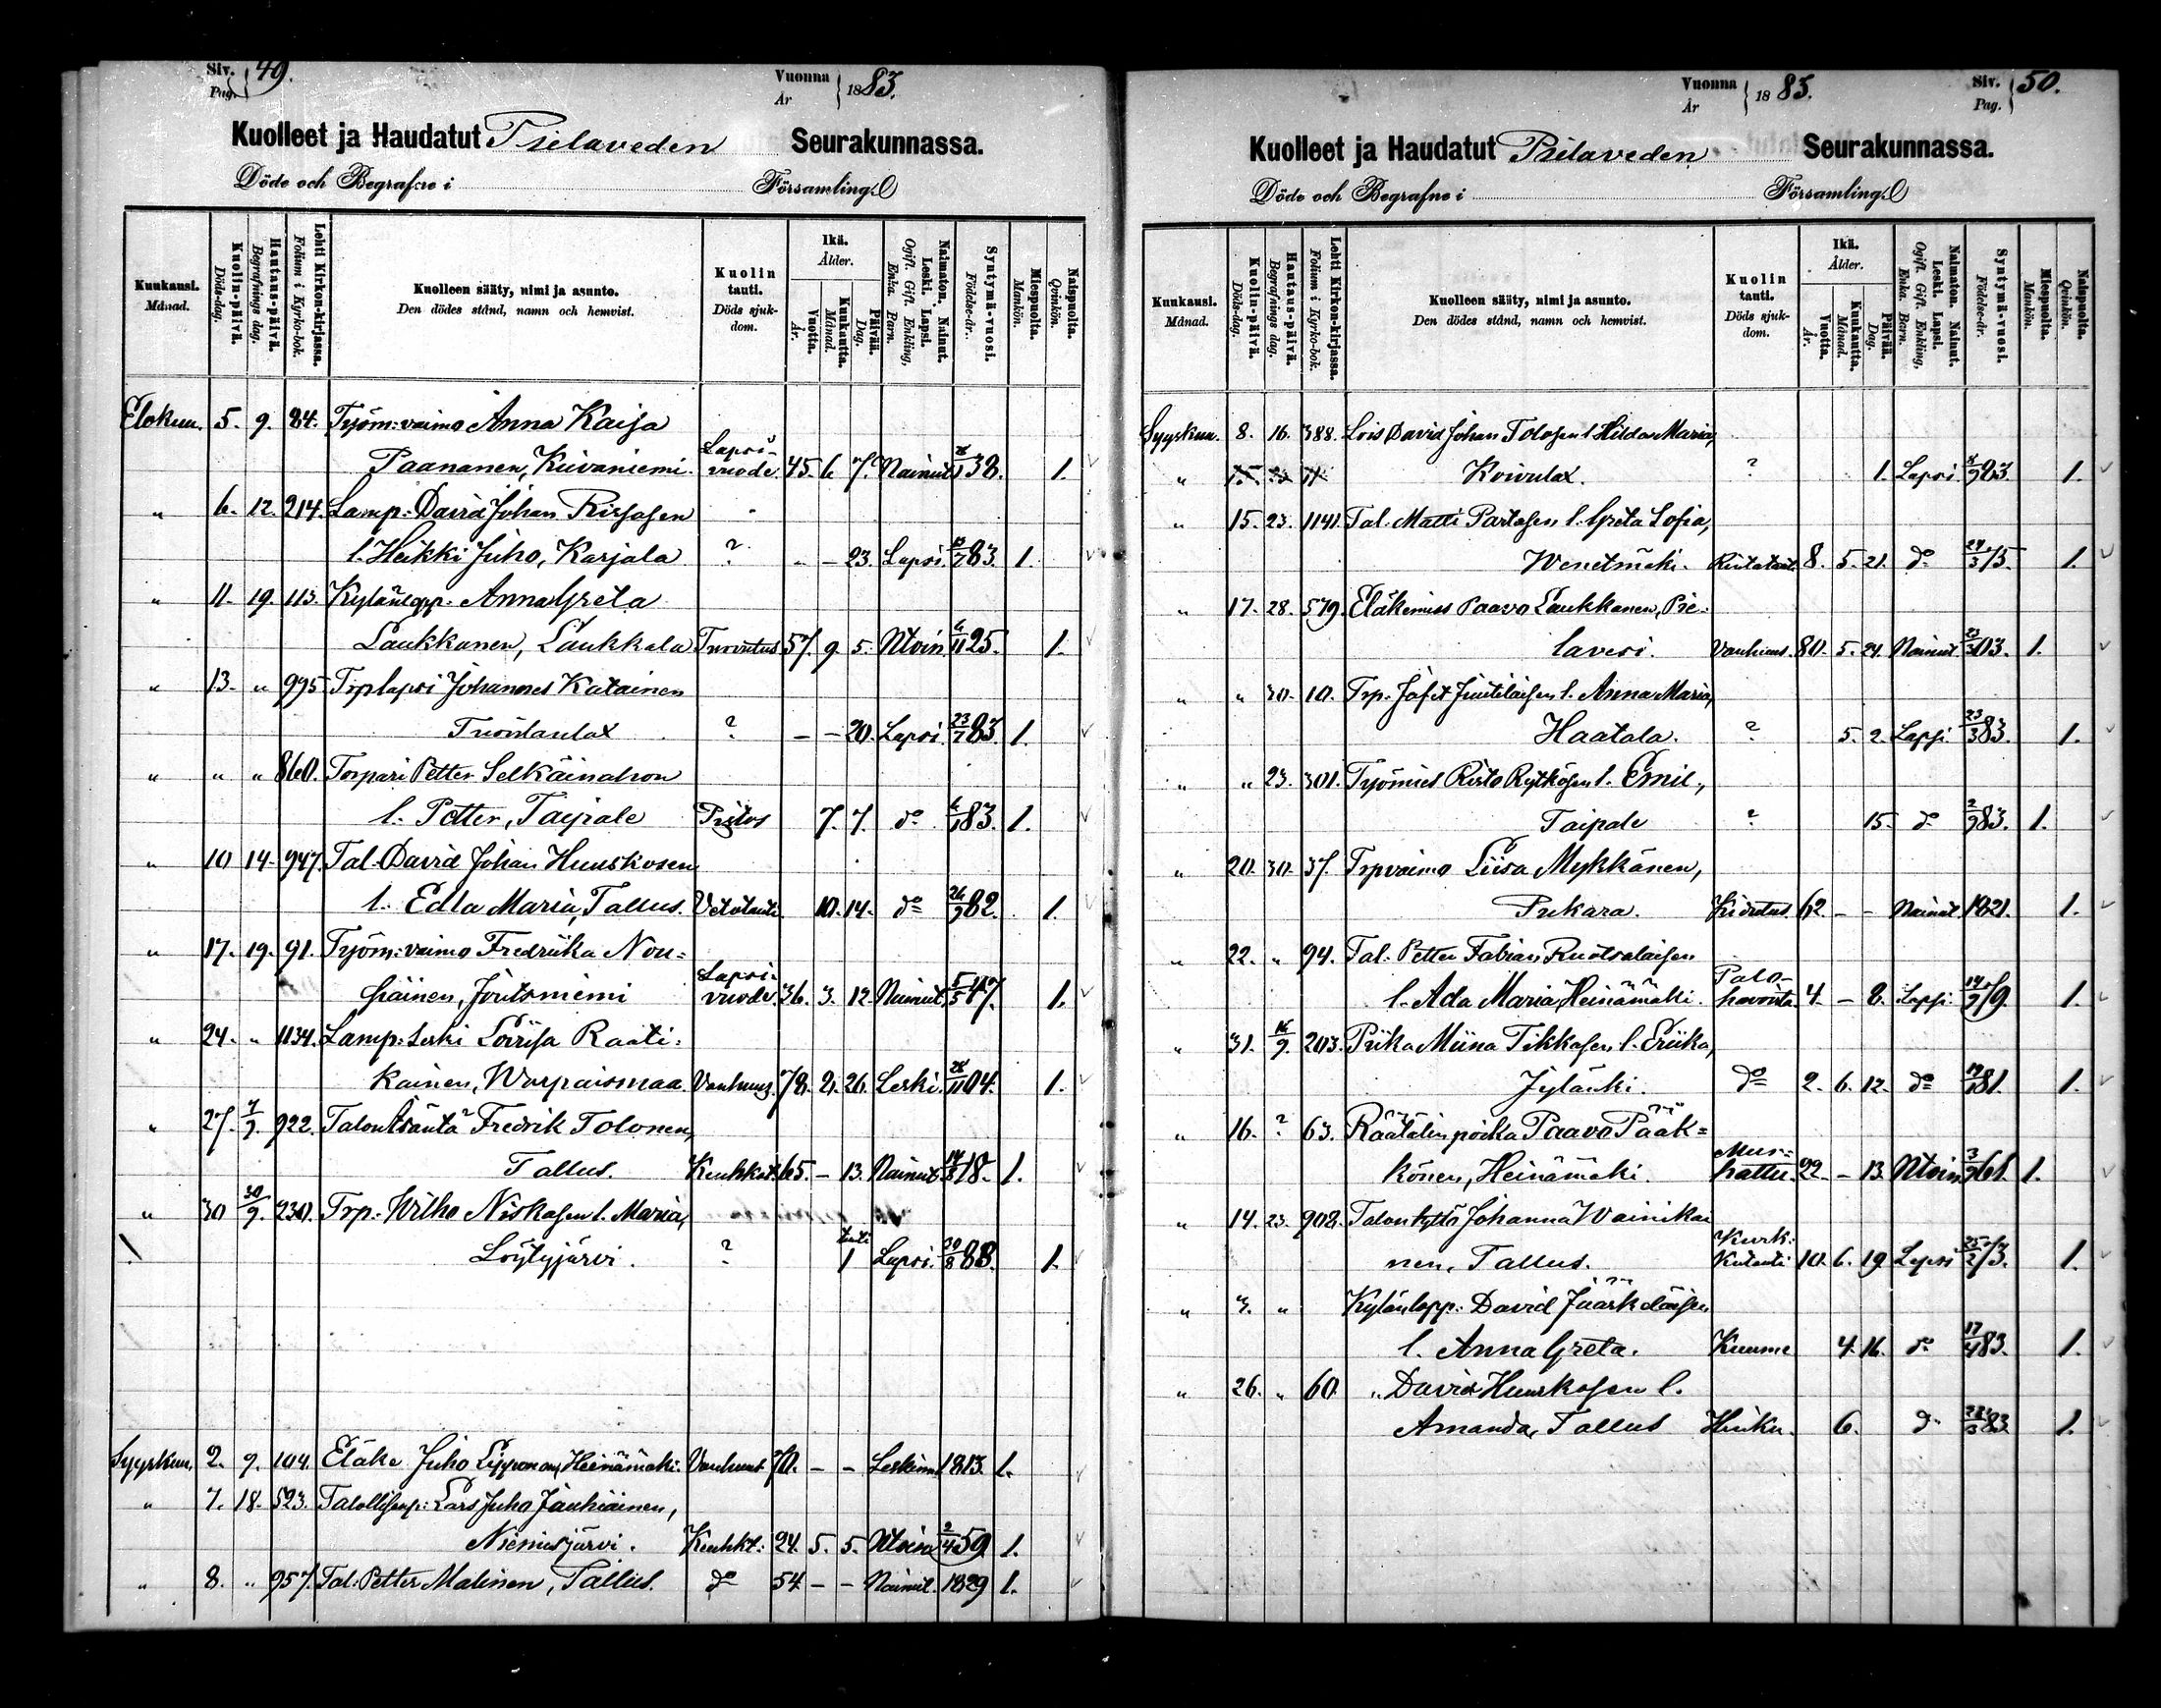 Siv. Pag. 49.
Vuonna År 1883.
Kuolleet ja Haudatut Pielaveden Seurakunnassa.
Döde och Begrafne i Församling.
Kuukausi. Månad.
Kuolin-päivä. Döds-dag.
Hautaus-päivä. Begrafnings dag.
Lehti Kirkon-kirjassa. Folium i Kyrko-bok.
Kuolleen sääty, nimi ja asunto. Den dödes stånd, namn och hemvist.
Kuolin tauti. Döds sjukdom.
Ikä. Ålder.
Vuotta. År.
Kuukautta. Månad.
Päivää. Dag.
Naimaton. Nainut. Leski. Lapsi. Ogift. Gift. Enkling, Enka. Barn.
Syntymä-vuosi. Födelse-år.
Miespuolta. Mankön.
Naispuolta. Qvinkön.
Elokuu. 5. 9. 84. Työm: vaimo Anna Kaisa
Paananen, Kiivaniemi. Lapsi-vuode. 45. 6. 7. Nainut 38. 1.
" 6. 12. 214. Lamp: David Johan Rissasen
l. Heikki Juho, Karjala ? " - 23. Lapsi. 83. 1.
" 11. 19. 113. Kylänlopp. Anna Greta
Laukkanen, Laukkala Turvutus 57. 9. 5. Ntoin. 6/11 25. 1.
" 13. " 995 Trplapsi Johannes Katainen
? - - 20. Lapsi. 23/7 83. 1.
" " " 860. Torpari Petter Selkäinahon
l. Petter, Taipale Pistos 7. 7. do 6/1 83. 1.
" 10 14. 947. Tal. David Johan Huuskosen
l. Edla Maria, Tallus. Vetotauti. 10. 14. do 26/9 82. 1.
" 17. 19. 91. Työm: vaimo Fredriika Nou-
siainen, Joutsniemi Lapsi-vuode. 36. 3. 12. Nainut. 5/5 47. 1.
" 24. " 1134. Lamp: leski Lovisa Raati-
kainen, Warpaismaa. Vanhuus. 78. 2. 26. Leski. 28/11 04. 1.
" 27. 7/9. 922. Talon Isäntä Fredrik Tolonen,
Tallus. Keuhkot. 65. - 13. Nainut. 14/8 18. 1.
" 30 30/9. 230. Trp. Wilho Niskasen l. Maria,
Löytyjärvi. ? 1 tunti Lapsi. 30/8 83. 1.
Syyskuu. 2. 9. 104. Eläke Juho Lipponen, Heinämäki. Vanhuus 70. - - Leskim 1813. 1.
" 7. 18. 523. Talollisenp: Lars Juho Jauhiainen,
Niemisjärvi. Keuhkt: 24. 5. 5. Ntoin 2/4 59. 1.
" 8. " 957. Tal: Petter Malinen, Tallus. do 54 - - Nainut. 1829 1.
Vuonna År 1883.
Siv. Pag. 50.
Kuolleet ja Haudatut Pielaveden Seurakunnassa.
Döde och Begrafne i Församling.
Kuukausi. Månad.
Kuolin-päivä. Döds-dag.
Hautaus-päivä. Begrafnings dag.
Lehti Kirkon-kirjassa. Folium i Kyrko-bok.
Kuolleen sääty, nimi ja asunto. Den dödes stånd, namn och hemvist.
Kuolin tauti. Döds sjukdom.
Ikä. Ålder.
Vuotta. År.
Kuukautta. Månad.
Päivää. Dag.
Naimaton. Nainut. Leski. Lapsi. Ogift. Gift. Enkling, Enka. Barn.
Syntymä-vuosi. Födelse-år.
Miespuolta. Mankön.
Naispuolta. Qvinkön.
Syyskuu. 8. 16. 388. Lois David Johan Tolosen l. Hilda Maria,
" ? 1. Lapsi. 8/9 83. 1.
" 15. 23. 1141. Tal. Matti Partasen l. Greta Sofia,
Wenetmäki. Rintataut. 8. 5. 21. do 24/3 75. 1.
" 17. 28. 579. Eläkemies Paavo Laukkanen, Pie-
lavesi. Vanhuus. 80. 5. 24. Nainut 23/3 03. 1.
" " 30. 10. Trp. Jafet Juutilaisen l. Anna Maria,
Haatala. ? 5. 2. Lapsi. 23/3 83. 1.
" " 23. 301. Työmies Risto Rytkösen l. Emil,
Taipale ? 15. do 2/9 83. 1.
" 20. 30. 37. Trpvaimo Liisa Mykkänen,
Pukara. Kidutus. 62. - - Nainut. 1821. 1.
" 22. " 94. Tal. Petter Fabian Ruotsalaisen
l. Ada Maria, Heinämäki. Palohavoista. 4. - 8. Lapsi. 14/9 79. 1.
" 31. 16/9. 203. Piika Miina Tikkasen l. Eriika,
Jylänki. do 2. 6. 12. do 19/1 81. 1.
" 16. ? 63. Räätälin poika Paavo Pääk-
könen, Heinämäki. Murhattu. 22. - 13. Ntoin 3/9 61. 1.
" 14. 23. 908. Talon tyttö Johanna Wainikai
nen, Tallus. Kurkkutauti 10. 6. 19 Lapsi 25/2 73. 1.
" 3. " Kylänlopp: David Jääskeläisen
l. Anna Greta. Kuume 4. 16. do 17/4 83. 1.
" 26. " 60. " David Huuskosen l.
Amanda, Tallus Hinku. 6. do 83 1.